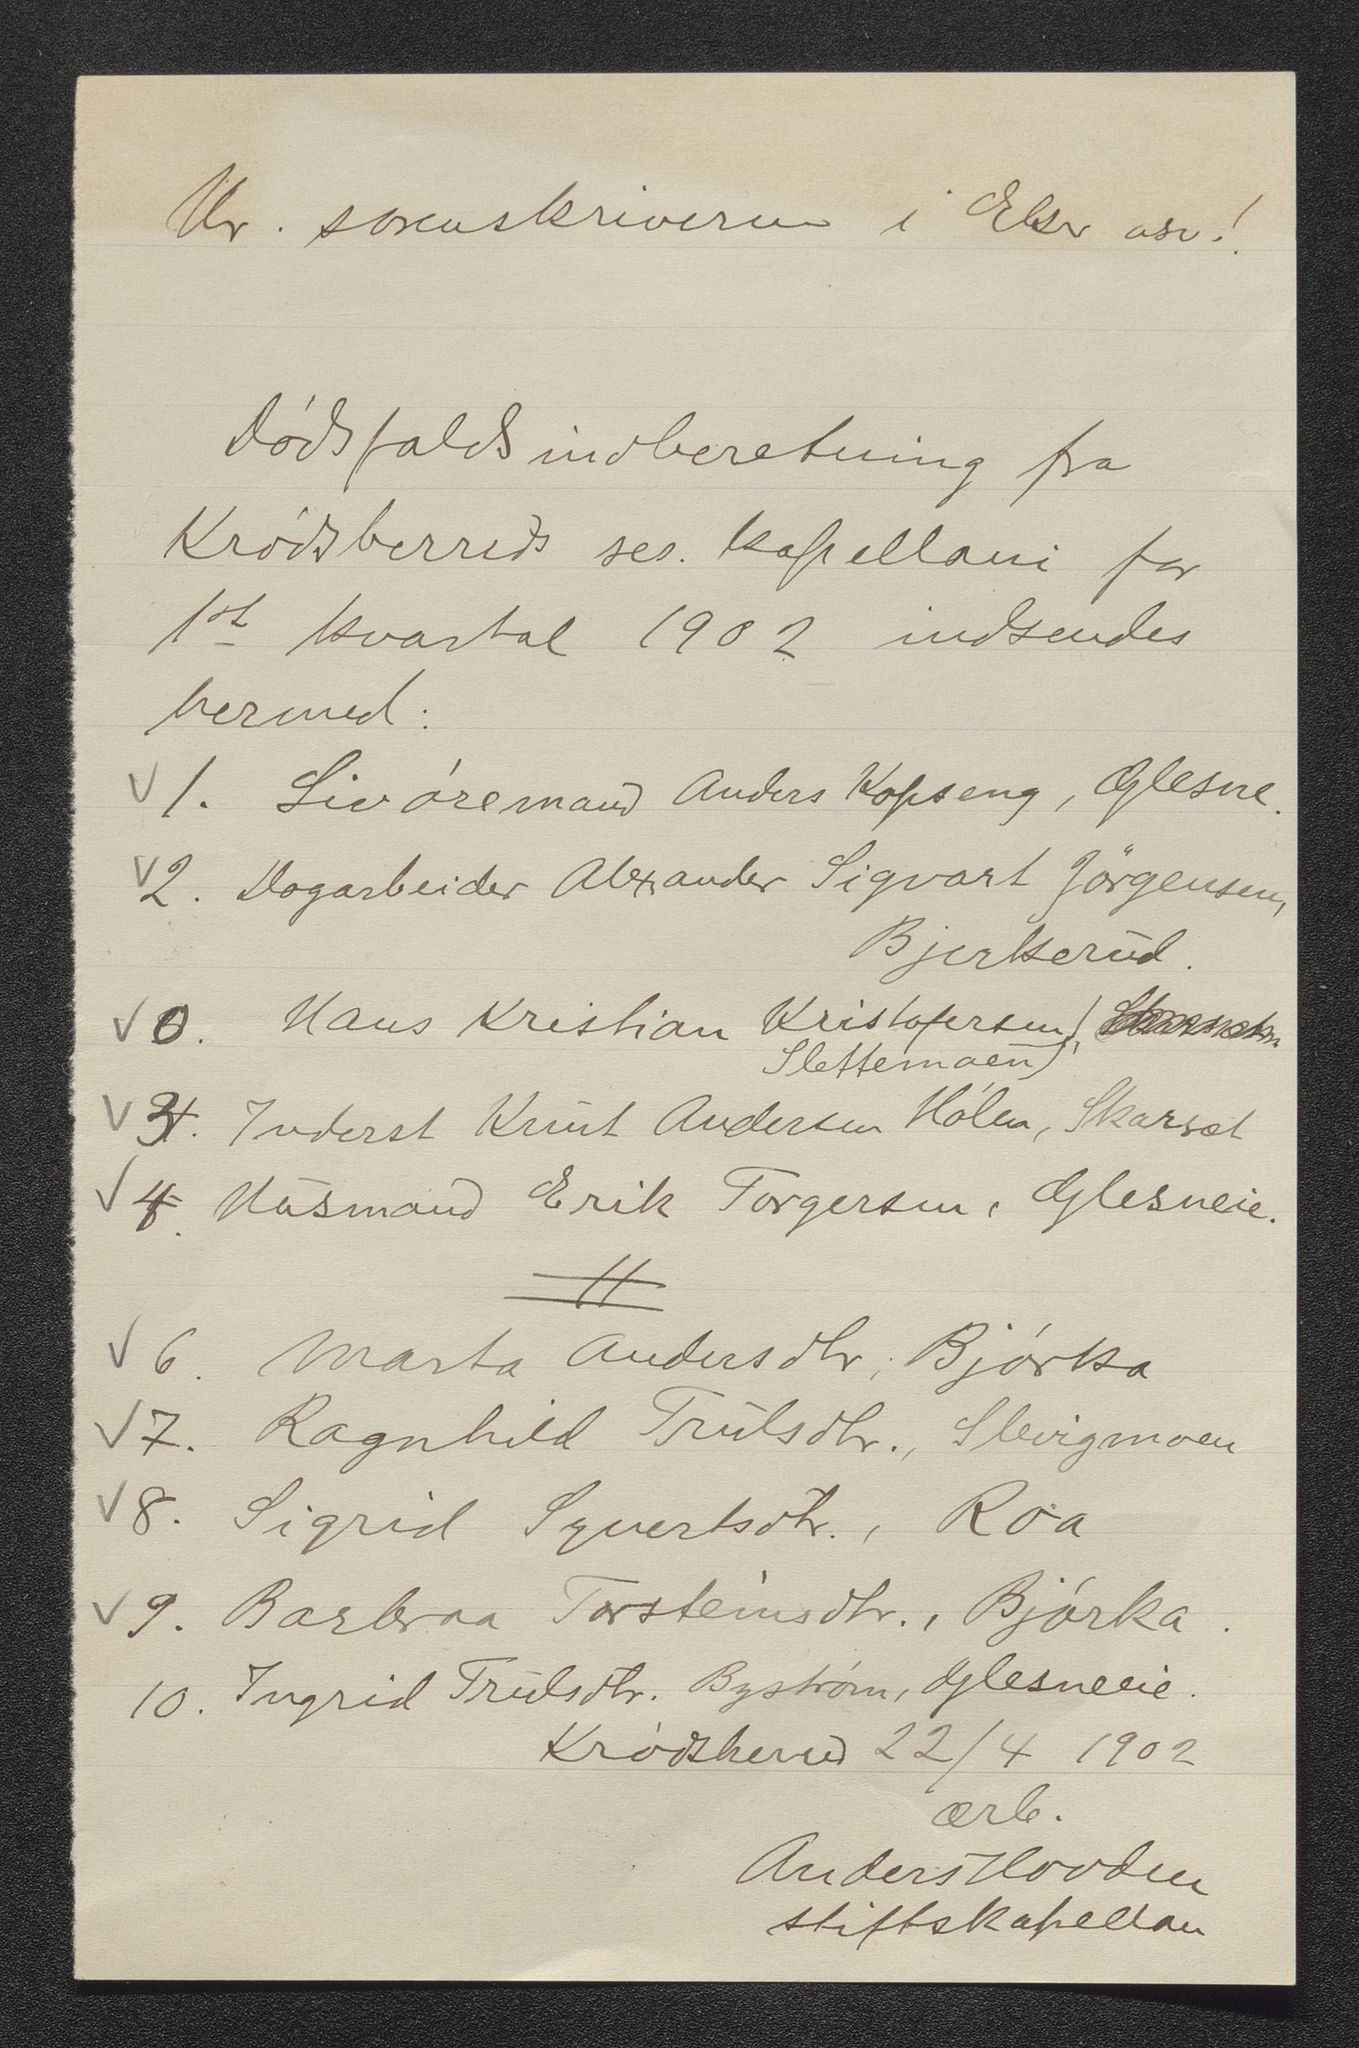 Hr. sorenskriveren i Eker osv.!
Dódsfaldsindberetning fra
Kródsherreds res. kapellani for
1st kvartal 1902 indsendes
hermed:
√ 1. Livóremand Anders Kopseng, Glesne.
√ 2. Dagarbeider Alexander Sigvart Jörgensen,
Bjerkerud.
√ 0. Hans Kristian Kristofersen,
Slettemoen
√ 3. Inderst Knut Andersen Hólen, Skarset
√ 4. Husmand Erik Torgersen, Glesneie.
√ 6. Marta Andersdtr, Bjórka
√ 7. Ragnhild Trulsdtr., Slevigmoen
√ 8. Sigrid Syvertsdtr., Roa
√ 9. Barbraa Torsteinsdtr., Bjórka.
10. Ingrid Trulsdtr. Byström, Glesneeie.
Kródsherred 22/4 1902
ærb.
Anders Hovden
stiftskapellan